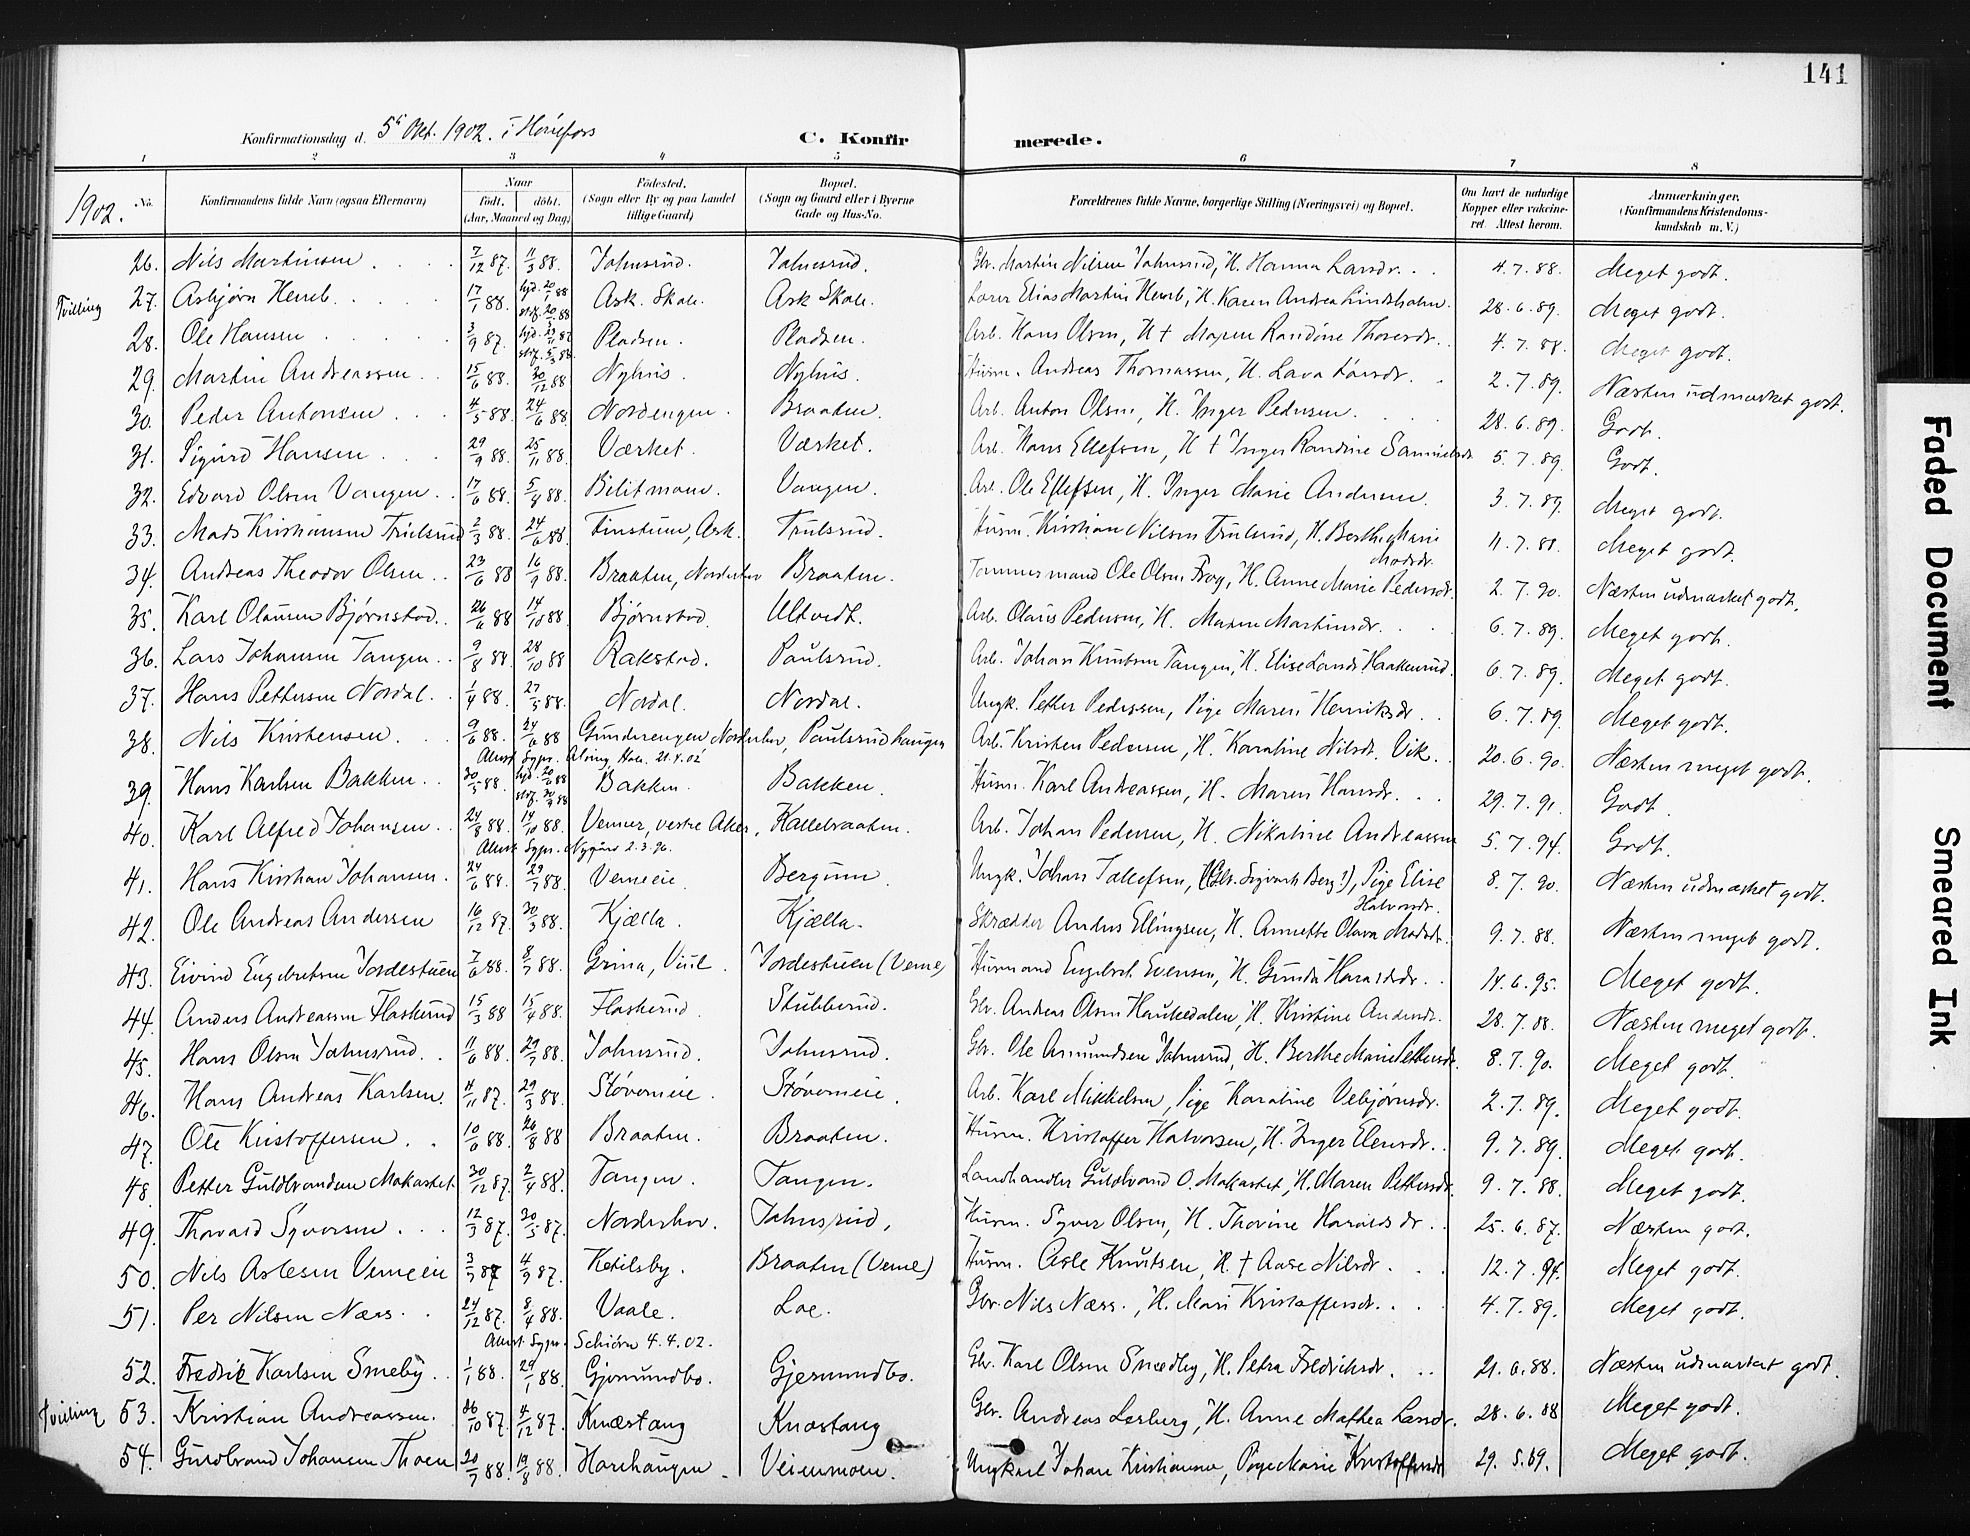 141
Konfirmationsdag d. 5te Okt. 1902. i Hønefos
C. Konfirmerede.
1 2 3 4 5 6 7 8
1902. No. Konfirmandens fulde Navn (ogsaa Efternavn) Naar født. døbt. (Aar, Maaned og Dag) Födested. (Sogn eller By og paa Landet tillige Gaard) Bopæl. (Sogn og Gaard eller i Byerne Gade og Hus-No. Forældrenes fulde Navne, borgerlige Stilling (Næringsvei) og Bopæl. Om havt de naturlige Kopper eller vaccineret. Attest herom. Anmærkninger. (Konfirmandens Kristendomskundskab m. V.)
26. Nils Martinsen 7/12 87. 11/3 88. Jahnsrud. Jahnsrud. Gbr. Martin Nilsen Jahnsrud, H. Hanna Larsdr. 4.7.88. Meget godt.
Tvilling 27. Asbjørn 17/1 88. hjd. 20/1 88 Ask. Skole. Ask Skole. Lærer Elias Martin H. Karen Andrea Lindsholm. 28.6.89. Meget godt.
28. Ole Hansen 3/9 87. Pladsen. Pladsen. Arb. Hans Olsen, H † Maren Randine Thoresdr. 4.7.88. Meget godt.
29. Martin Andreassen 15/6 88. 30/12 88 Nyhus. Nyhus. Husm. Andreas Thomassen, H. Lava Larsdr. 2.7.89. Næsten udmærket godt.
30. Peder Antonsen 4/5 88. 24/6 88. Nordengen. Braaten. Arb. Anton Olsen, H. Inger Pedersen. 28.6.89. Godt.
31. Sigurd Hansen 29/9 88. 25/11 88. Værket. Værket. Arb. Hans Ellefsen, H † Inger Randine Samuelsdr. 5.7.89. Godt.
32. Edvard Olsen Vangen. 17/6 88. 5/8 88. Bilitmoen. Vangen. Arb. Ole Ellefsen, H. Inger Marie Andersen. 3.7.89. Meget godt.
33. Mads Kristiansen Trulsrud 2/3 88. 24/6 88. Finstuen, Ask. Trulsrud. Husm. Kristian Nilsen Trulsrud, H. Berthe Marie Madsdr. 11.7.88. Meget godt.
34. Andreas Theodor Olsen. 23/6 88 16/9 88. Braaten, Norderhov Braaten. Tømmermand Ole Olsen Frog, H. Anne Marie Pedersdr. 2.7.90. Næsten udmærket godt.
35. Karl Olausen Bjørnstad. 26/6 88 14/10 88. Bjørnstad. Ultvedt. Arb. Olaus Pedersen, H. Maren Martinsdr. 6.7.89. Meget godt.
36. Lars Johansen Tangen. 9/8 88. 28/10 88 Rakstad. Paulsrud. Arb. Johan Knutsen Tangen, H. Elise Larsdr. Haakenrud. 6.7.89. Meget godt.
37. Hans Pettersen Nordal. 1/4 88. 27/5 88. Nordal. Nordal. Ungk. Petter Pedersen, Pige Maren Henriksdr. 6.7.89. Meget godt.
38. Nils Kristensen. 9/6 88. 24/6 88 Gunderengen, Norderhov, Paulsrudhaugen Arb. Kristen Pedersen, H. Karoline Nilsdr. Vik. 20.6.90. Næsten meget godt.
Attest Sgpr. Alving, Hole. 21.4.02
39. Hans Karlsen Bakken. 30/5 88. hjd. Bakken. Bakken. Husm. Karl Andreassen, H. Maren Hansdr. 29.7.91. Godt.
40. Karl Alfred Johansen. 24/8 88. 14/10 88. Venner, vestre Aker, Kallebraaten. Arb. Johan Pedersen, H. Nikoline Andreassen 5.7.94. Godt.
Attest Sgpr. Nygård 2.3.96.
41. Hans Kristian Johansen. 24/6 88. 29/7 88. Vemeeie. Bergum. Ungk. Johan Tollefsen, Pige Elise Halvorsdr. 8.7.90. Næsten udmærket godt.
42. Ole Andreas Andersen 16/12 87. 30/3 88. Kjælla. Kjælla. Skrædder Anders Ellingsen, H. Annette Olava Madsdr. 9.7.88. Næsten meget godt.
43. Eivind Engebretsen Jordestuen 7/6 88. 8/7 88. Grina, Viul. Jordestuen (Veme) Husmand Engebret Evensen, H. Gunda Haraldsdr. 14.6.95. Meget godt.
44. Anders Andreassen Flaskerud 15/3 88 15/4 88. Flaskerud. Stubberud. Gbr. Andreas Olsen Haukedalen, H. Kristine Andersdr. 28.7.88. Næsten meget godt.
45. Hans Olsen Jahnsrud. 11/6 88. 29/7 88. Jahnsrud. Jahnsrud. Gbr. Ole Amundsen Jahnsrud, H. Berthe Marie Pettersdr. 8.7.90. Meget godt.
46. Hans Andreas Karlsen. 4/11 87. 29/3 88. Støverneie. Støverneie. Arb. Karl Mikkelsen, Pige Karoline Vebjørnsdr. 2.7.89. Meget godt.
47. Ole Kristoffersen. 10/6 88. 26/8 88 Braaten. Braaten. Husm. Kristoffer Halvorsen, H. Inger Elensdr. 9.7.89. Meget godt.
48. Petter Guldbrandsen Mokastet. 30/12 87. 2/4 88. Tangen. Tangen. Landhandler Guldbrand O. Mokastet, H. Maren Pettersdr. 9.7.88. Meget godt.
49. Thorvald Syversen. 12/3 87. 20/5 87. Norderhov. Jahnsrud, Husm. Syver Olsen, H. Thorine Haraldsdr. 25.6.87. Næsten godt.
50. Nils Aslesen Vemeeie 3/7 87 4/9 87. Ketilsby. Braaten (Veme) Husm. Asle Knutsen, H. † Aase Nilsdr. 12.7.94. Meget godt.
51. Per Nilsen Næss. 24/12 87. 8/4 88. Vaale. Loe. Gbr. Nils Næss., H. Mari Kristoffersdr. 4.7.89. Meget godt.
Attest. Sgpr. Schiørn 4.4.02.
52. Fredrik Karlsen Smeby. 1/1 88. 29/1 88. Gjermundbo. Gjermundbo. Gbr. Karl Olsen Smedby, H. Petra Fredriksdr. 21.6.88. Næsten udmærket godt.
Tvilling 53. Kristian Andreassen. 26/10 87. 4/12 87. Knæstang Knæstang Gbr. Andreas Lerberg, H. Anne Mathea Larsdr. 28.6.88 Meget godt.
54. Guldbrand Johansen Thoen 20/7 88. 19/8 88. Honehaugen. Veienmoen. Ungkarl Johan Kristiansen, Pige Marie Kristoffersdr 29.5.89. Meget godt.
Faded Document
Smeared Ink